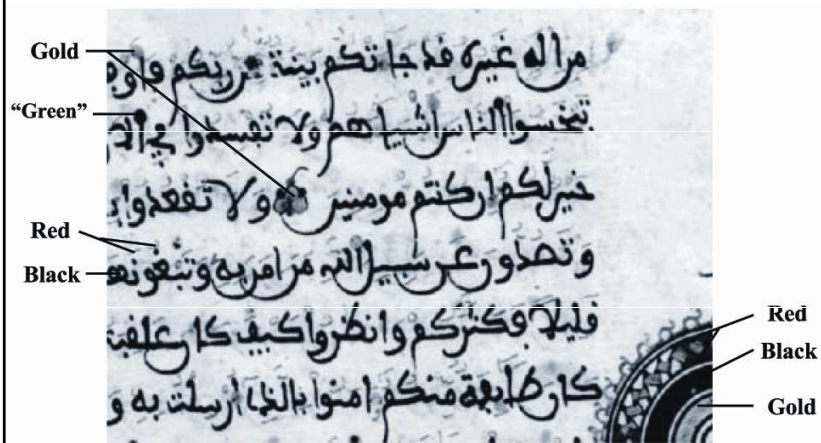 Gold
“Green”
Red
Black
من اله غيره قد جاتكم بينة من ربكم
تبخسوا الناس اشياهم ولا تفسدوا في
خير لكم ان كنتم مومنين ولا تقعدوا
وتصدون عن سبيل الله من امن به وتبغونها
قليلا فكثركم وانظروا كيف كان عاقبة
كان طايفة منكم امنوا بالذي ارسلت به و
Red
Black
Gold